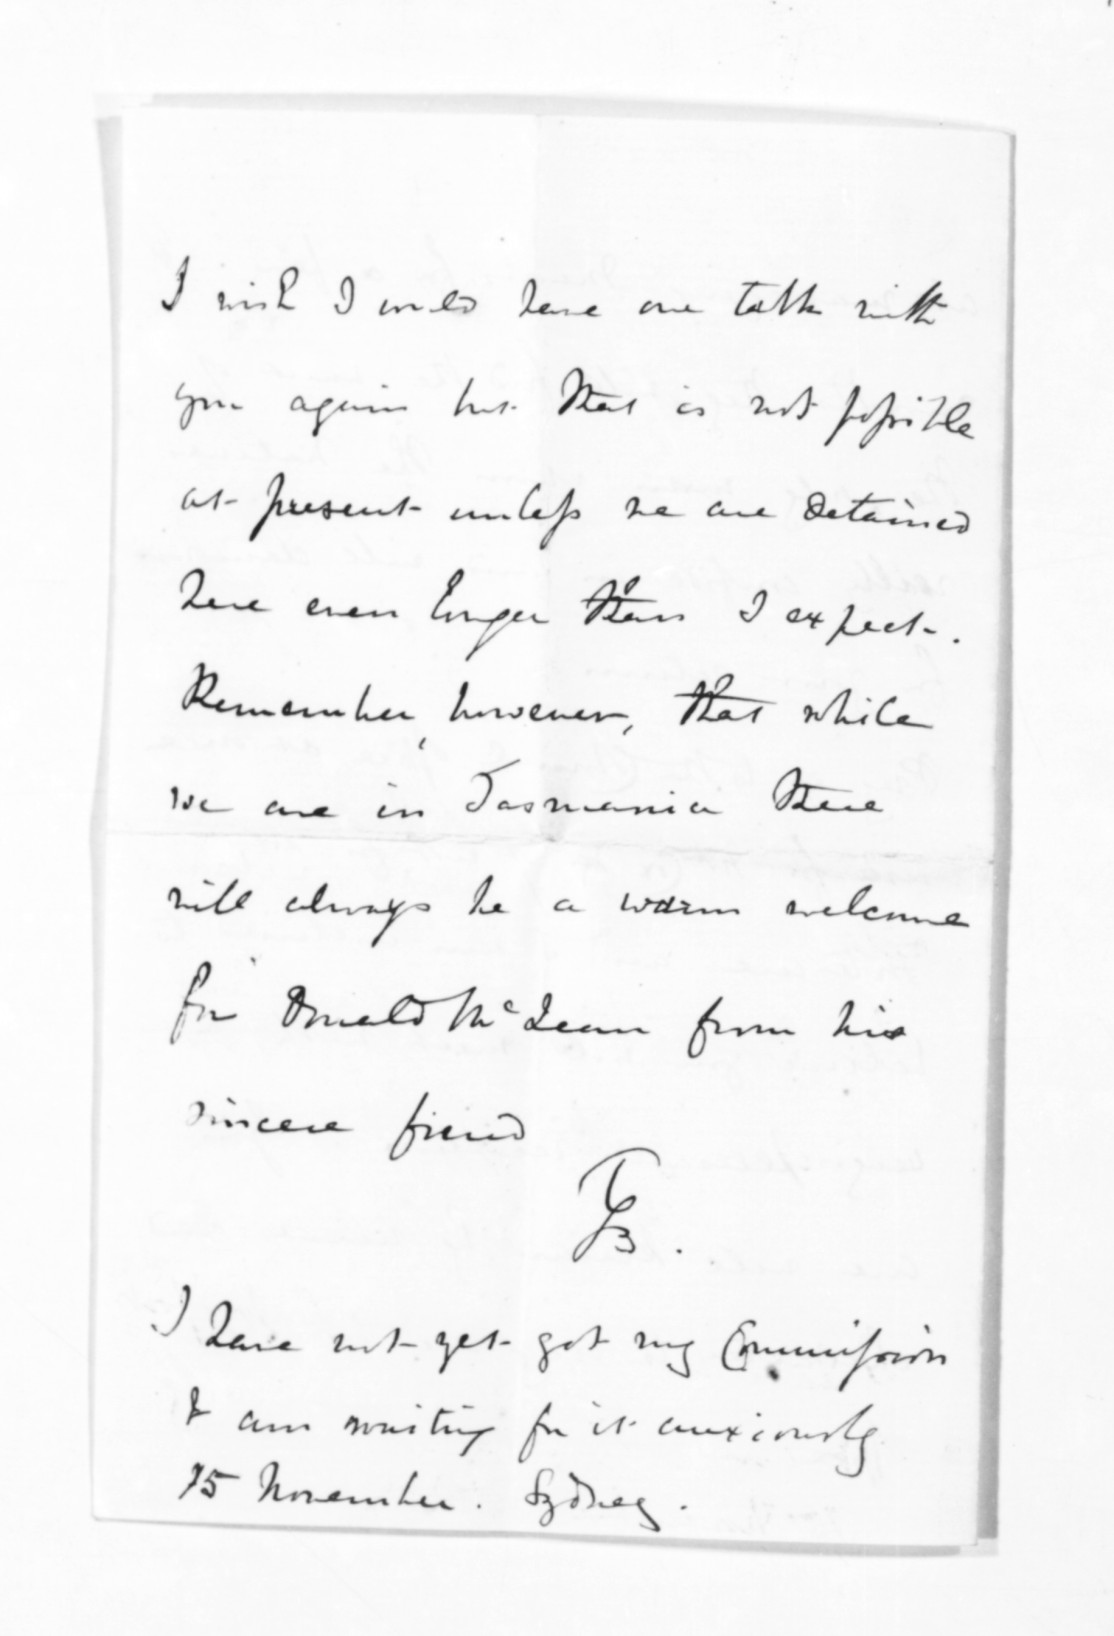 I wish I could have one talk with
you again but that is not possible
at present unless we are detained
here even longer than I expect.
Remember, however, that while
we are in Tasmania there
will always be a warm welcome
for Donald McLean from his
sincere friend
TGB.
I have not yet got my Commission
& am waiting for it anxiously
15 November. Sydney.